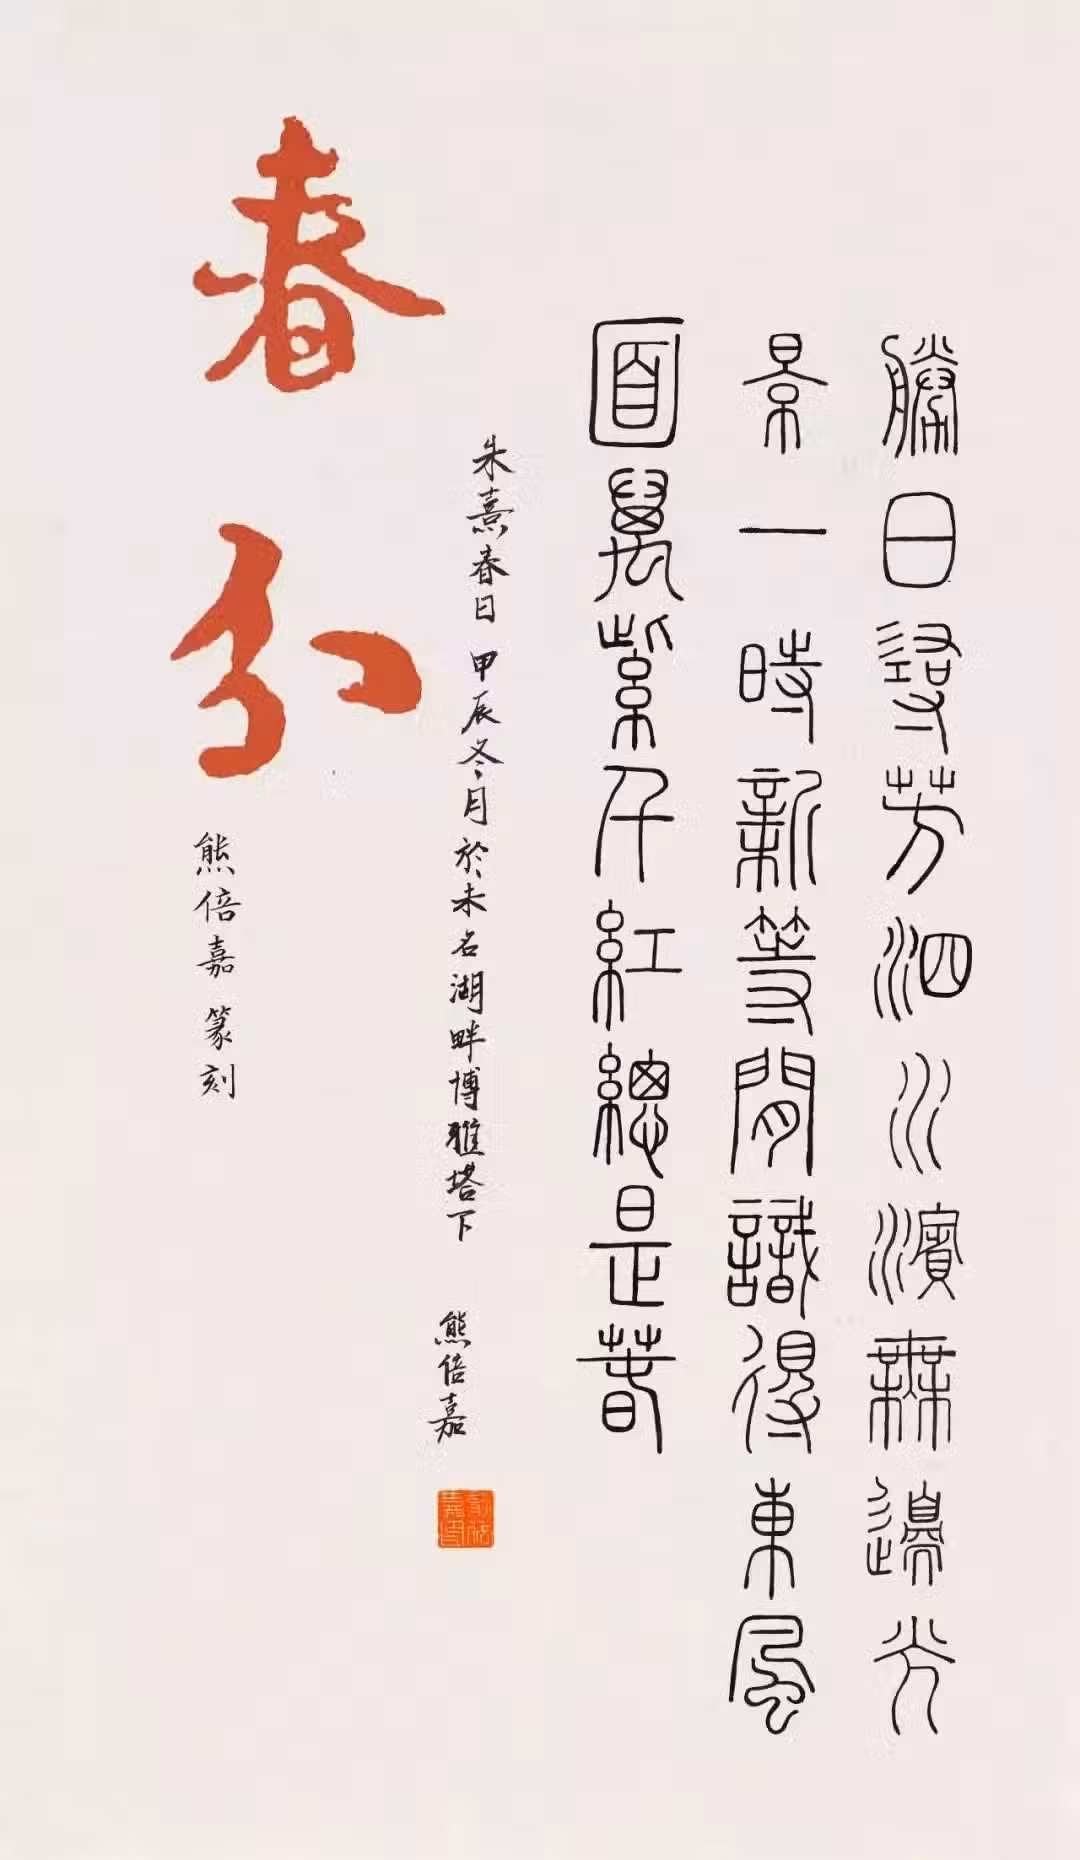 勝日尋芳泗水濱無邊光
景一時新等閒識得東風
面萬紫千紅總是春
朱熹春日 甲辰冬月於未名湖畔博雅塔下
熊倍嘉
春分
熊倍嘉 篆刻